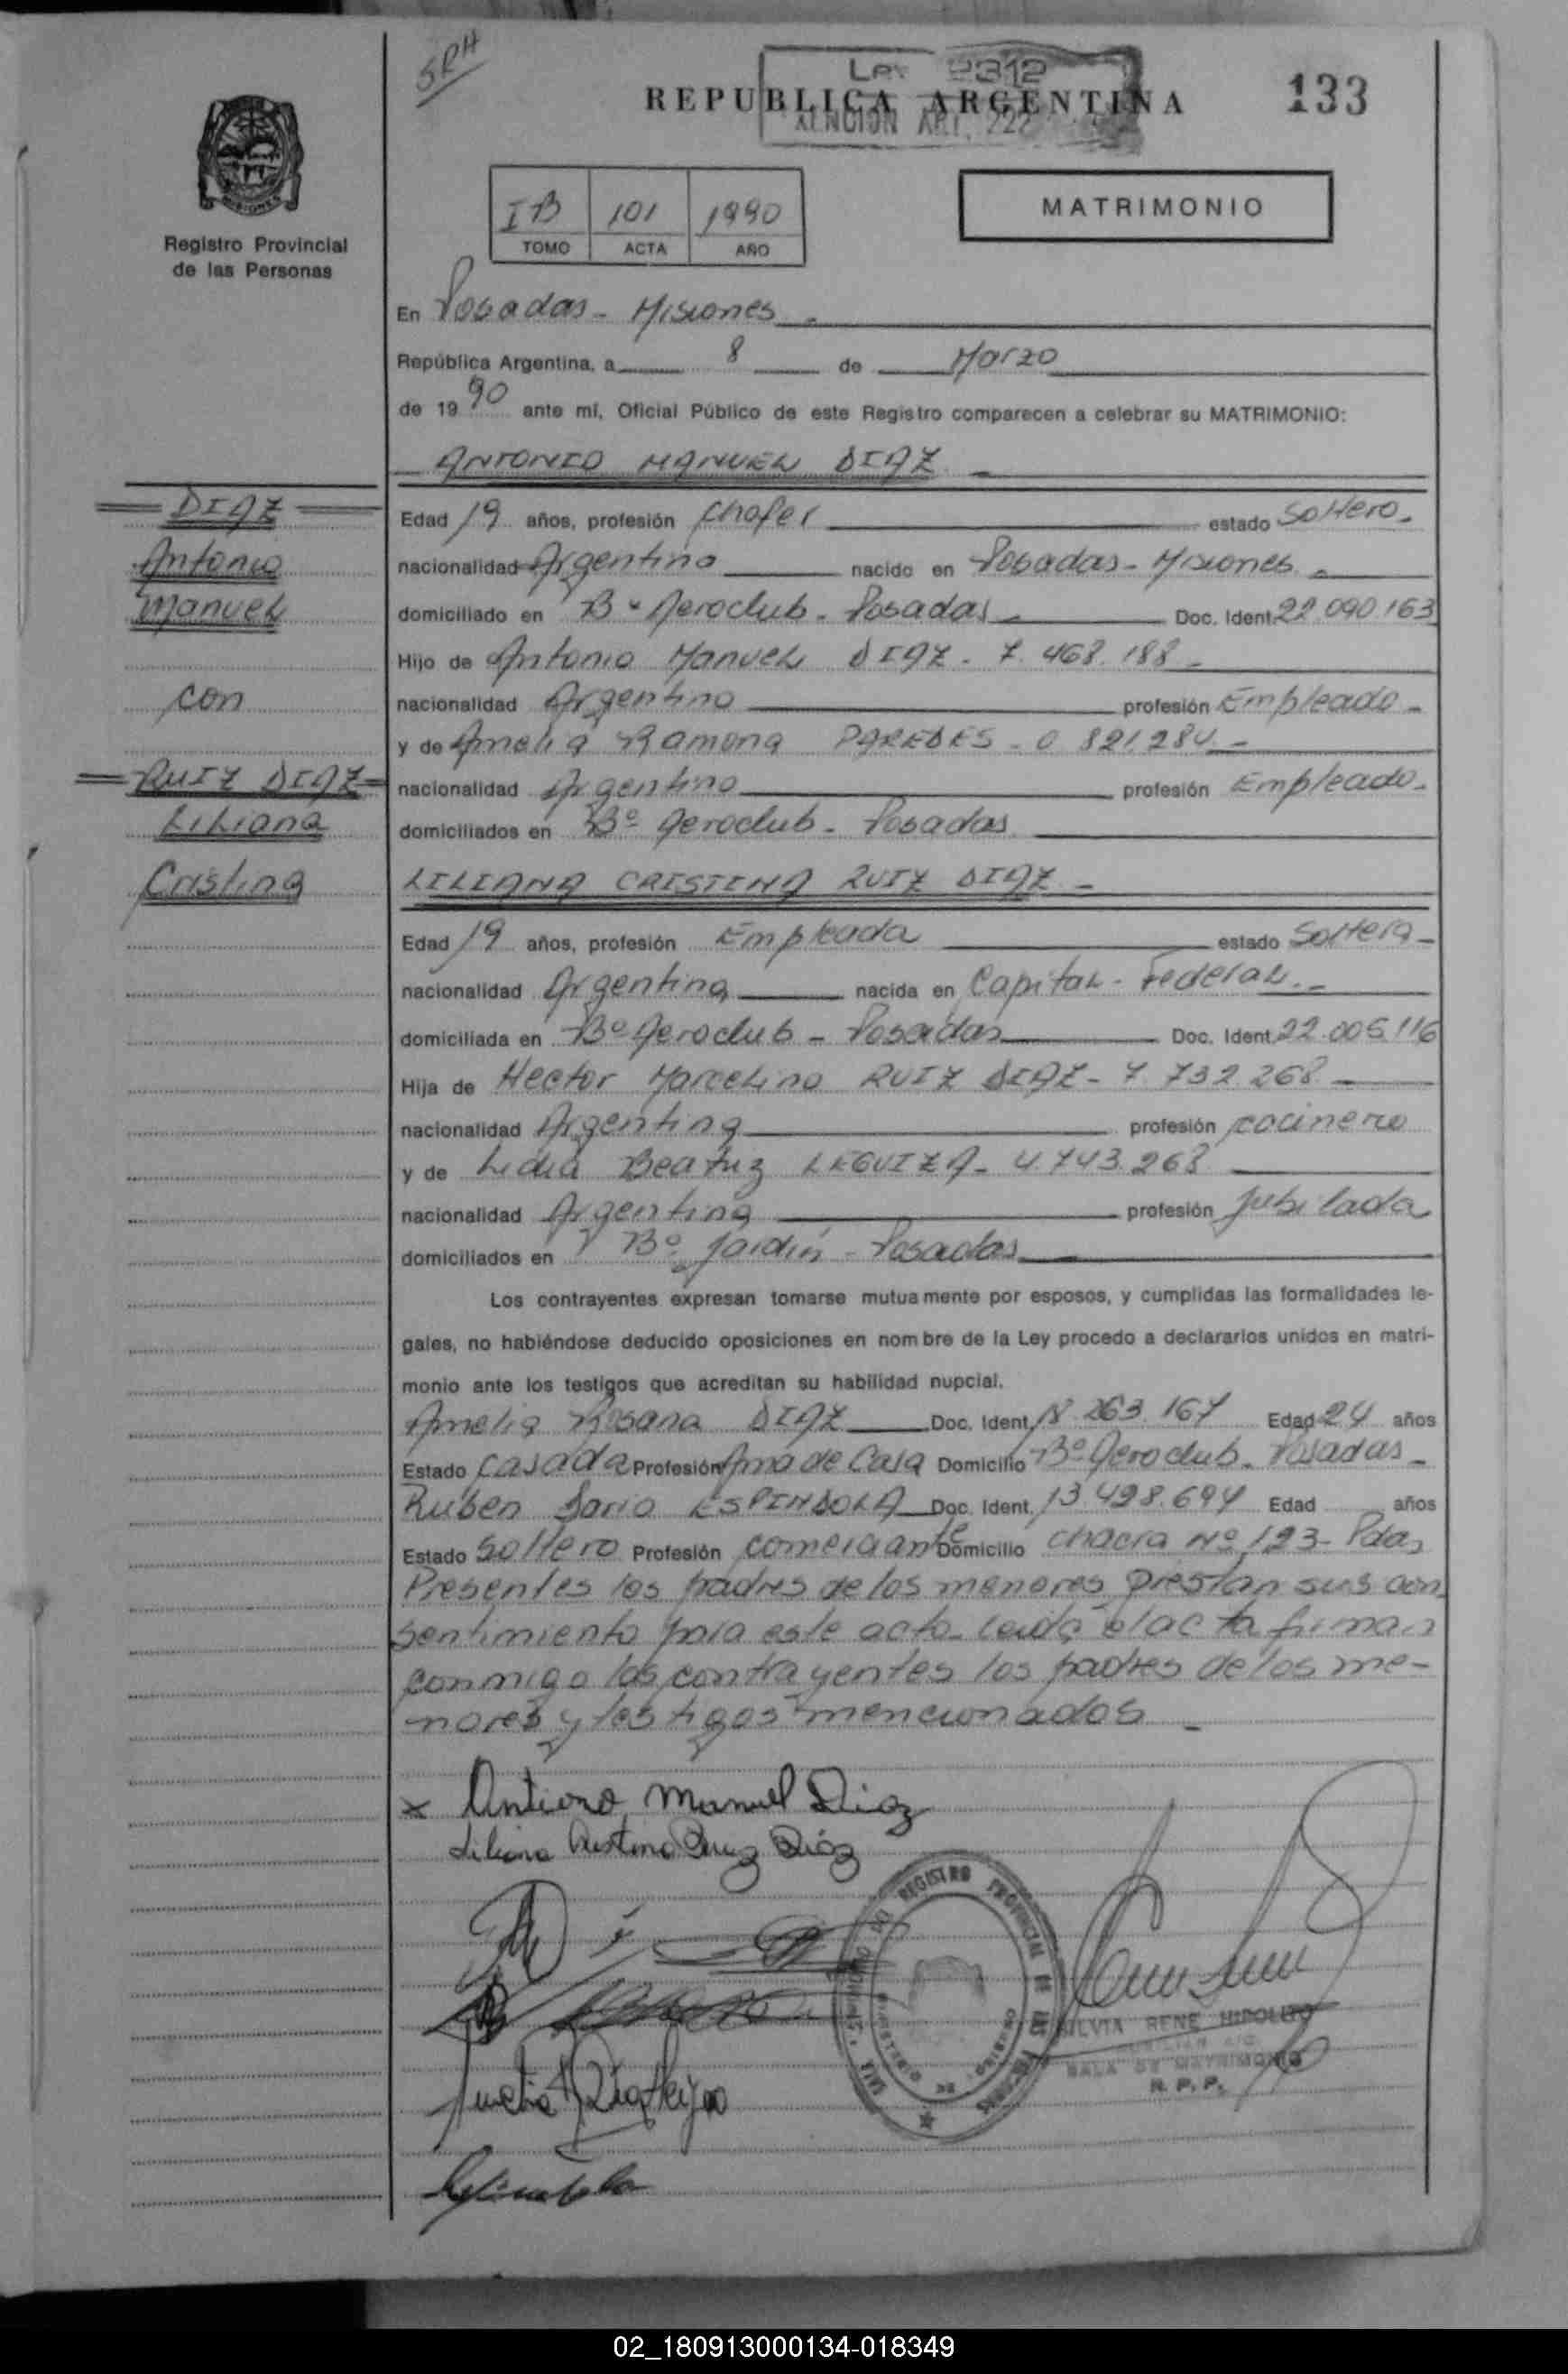 SRH
Ley 2312
REPUBLICA ARGENTINA
133
EXENCION ART. 222
IB 101 1990
TOMO ACTA AÑO
MATRIMONIO
MISIONES
Registro Provincial
de las Personas
En Posadas - Misiones -
República Argentina, a 8 de Marzo
de 1990 ante mí, Oficial Público de este Registro comparecen a celebrar su MATRIMONIO:
ANTONIO MANUEL DIAZ -
DIAZ
Antonio
Manuel
con
RUIZ DIAZ
Liliana
Cristina
Edad 19 años, profesión Chofer estado Soltero -
nacionalidad Argentino nacido en Posadas - Misiones -
domiciliado en Bº Aeroclub - Posadas Doc. Ident. 22.090.163
Hijo de Antonio Manuel DIAZ - 7.468.188 -
nacionalidad Argentino profesión Empleado -
y de Amelia Ramona PAREDES - 0 821.284 -
nacionalidad Argentino profesión Empleado -
domiciliados en Bº Aeroclub - Posadas
LILIANA CRISTINA RUIZ DIAZ -
Edad 19 años, profesión Empleada estado Soltera -
nacionalidad Argentina nacida en Capital - Federal -
domiciliada en Bº Aeroclub - Posadas Doc. Ident. 22.005.116
Hija de Hector Marcelino RUIZ DIAZ - 7.732.268
nacionalidad Argentina profesión cocinero
y de Lidia Beatriz LEGUIZA - 4.743.268
nacionalidad Argentina profesión Jubilada
domiciliados en Bº Jardín - Posadas
Los contrayentes expresan tomarse mutuamente por esposos, y cumplidas las formalidades le-
gales, no habiéndose deducido oposiciones en nombre de la Ley procedo a declararlos unidos en matri-
monio ante los testigos que acreditan su habilidad nupcial.
Amelia Rosana DIAZ Doc. Ident. 18.263.167 Edad 24 años
Estado Casada Profesión Ama de Casa Domicilio Bº Aeroclub - Posadas -
Ruben Dario ESPINDOLA Doc. Ident. 13.498.694 Edad años
Estado Soltero Profesión comerciante Domicilio Chacra Nº 123 - Pdas
Presentes los padres de los menores prestan sus con
sentimiento para este acto - Leída el acta firman
conmigo los contrayentes los padres de los me-
nores y testigos mencionados -
x Antiono Manuel Diaz
Liliana Cristina Ruiz Diaz
REGISTRO PROVINCIAL DE LAS PERSONAS
SILVIA RENE HIPOLITO
SALA DE MATRIMONIO
R. P. P.
02_180913000134-018349